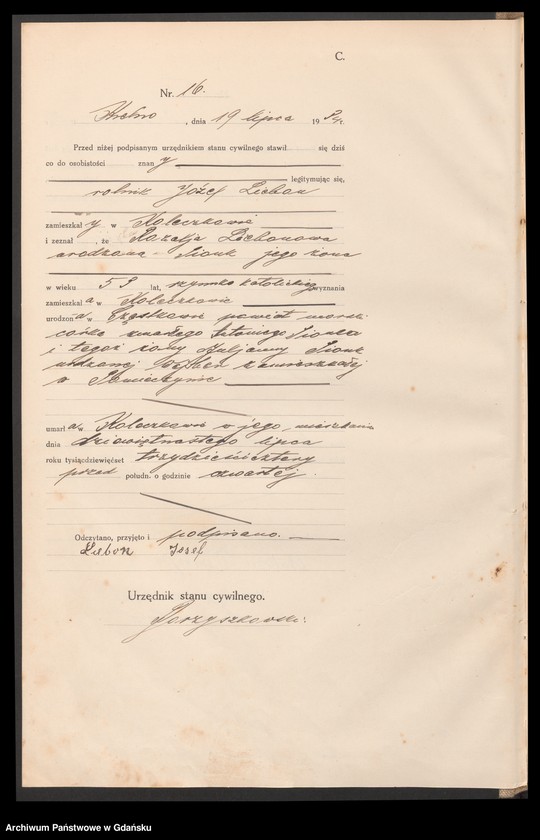 C.
Nr. 16.
, dnia 19 lipca 1934r.
Przed niżej podpisanym urzędnikiem stanu cywilnego stawił się dziś
co do osobistości znany
legitymując się,
rolnik Józef Liebon
zamieszkały w Koleczkowie
i zeznał, że Rozalja Liebonowa
urodzona Sionk jego żona
w wieku 53 lat, rzymsko katolickiego wyznania
zamieszkała w Koleczkowie
urodzona w powiat morski
córka zmarłego Antoniego Sionka
i tegoż żony Juljanny Sionk
urodzonej zamieszkałej
w
umarła w Koleczkowie w jego mieszkaniu
dnia dziewiętnastego lipca
roku tysiącdziewięćset trzydzieści cztery
przed połudn. o godzinie czwartej.
Odczytano, przyjęto i podpisano.
Liebon Józef
Urzędnik stanu cywilnego.
Archiwum Państwowe w Gdańsku